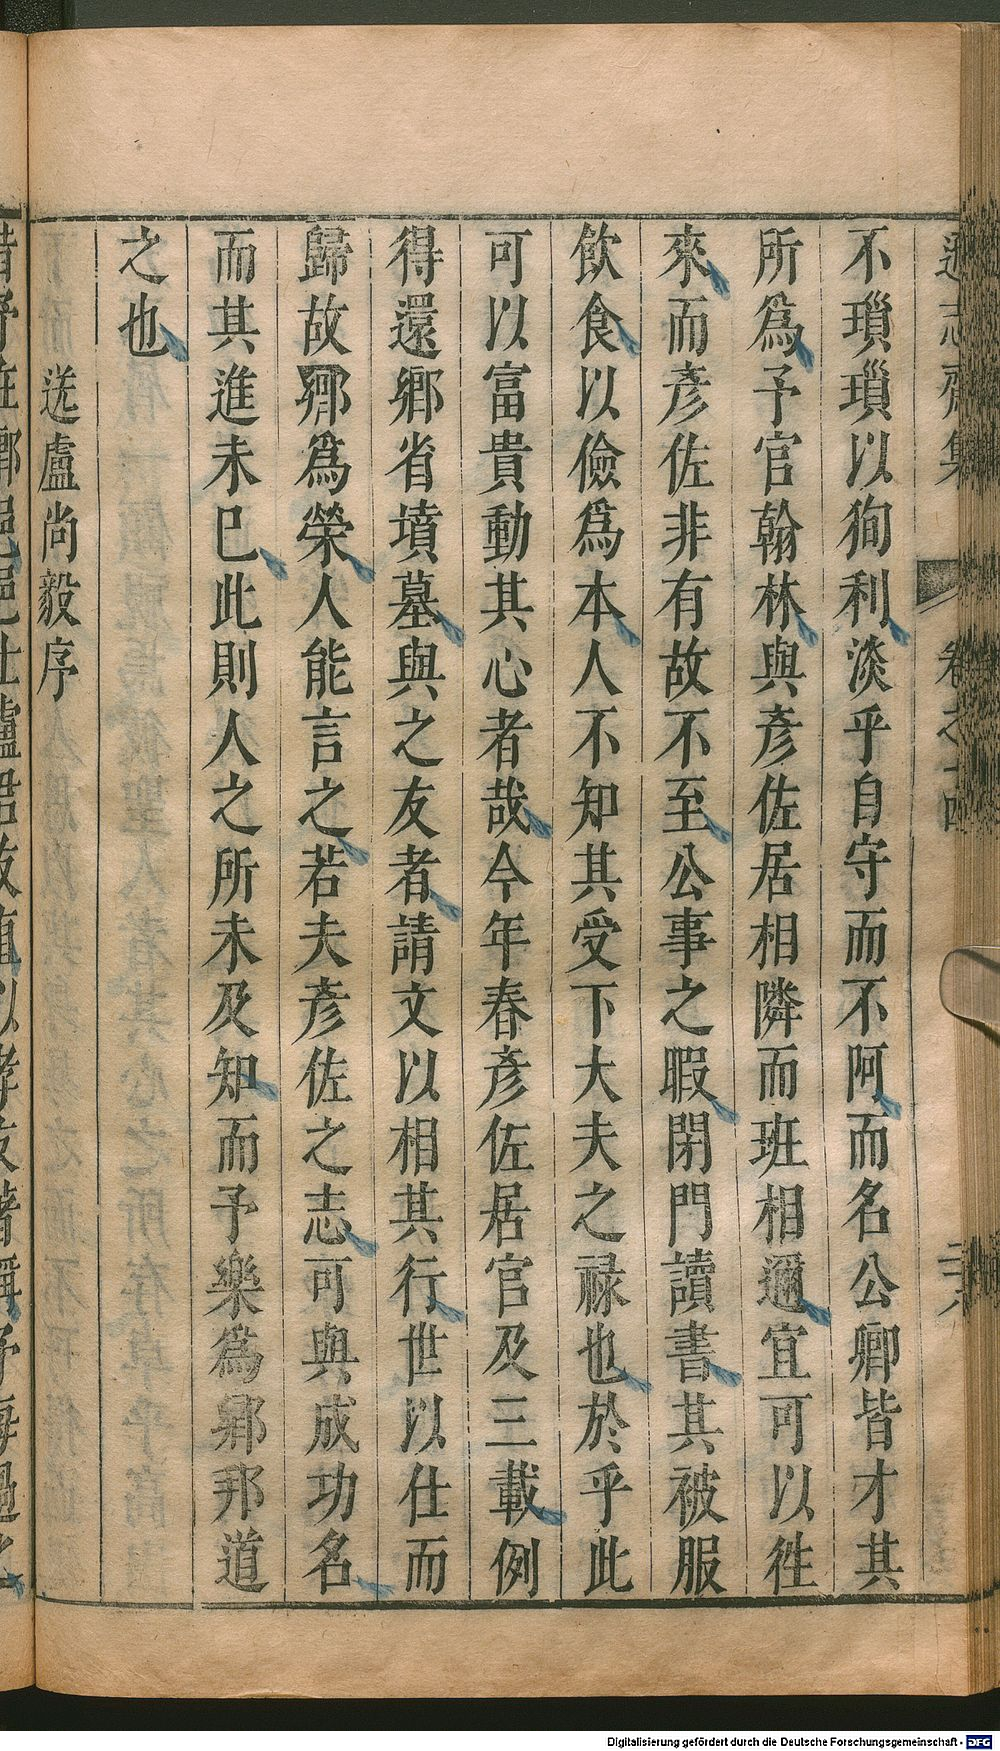 遜志齋集 卷之十四
不瑣瑣以狥利淡乎自守而不阿而名公卿皆才其
所爲予官翰林與彥佐居相隣而班相邇宜可以徃
來而彥佐非有故不至公事之暇閉門讀書其被服
飲食以儉爲本人不知其受下大夫之禄也於乎此
可以富貴動其心者哉今年春彥佐居官及三載例
得還鄉省墳墓與之友者請文以相其行世以仕而
歸故鄉爲榮人能言之若夫彥佐之志可與成功名
而其進未已此則人之所未及知而予樂爲鄉邦道
之也
送盧尚毅序
Digitalisierung gefördert durch die Deutsche Forschungsgemeinschaft - DFG